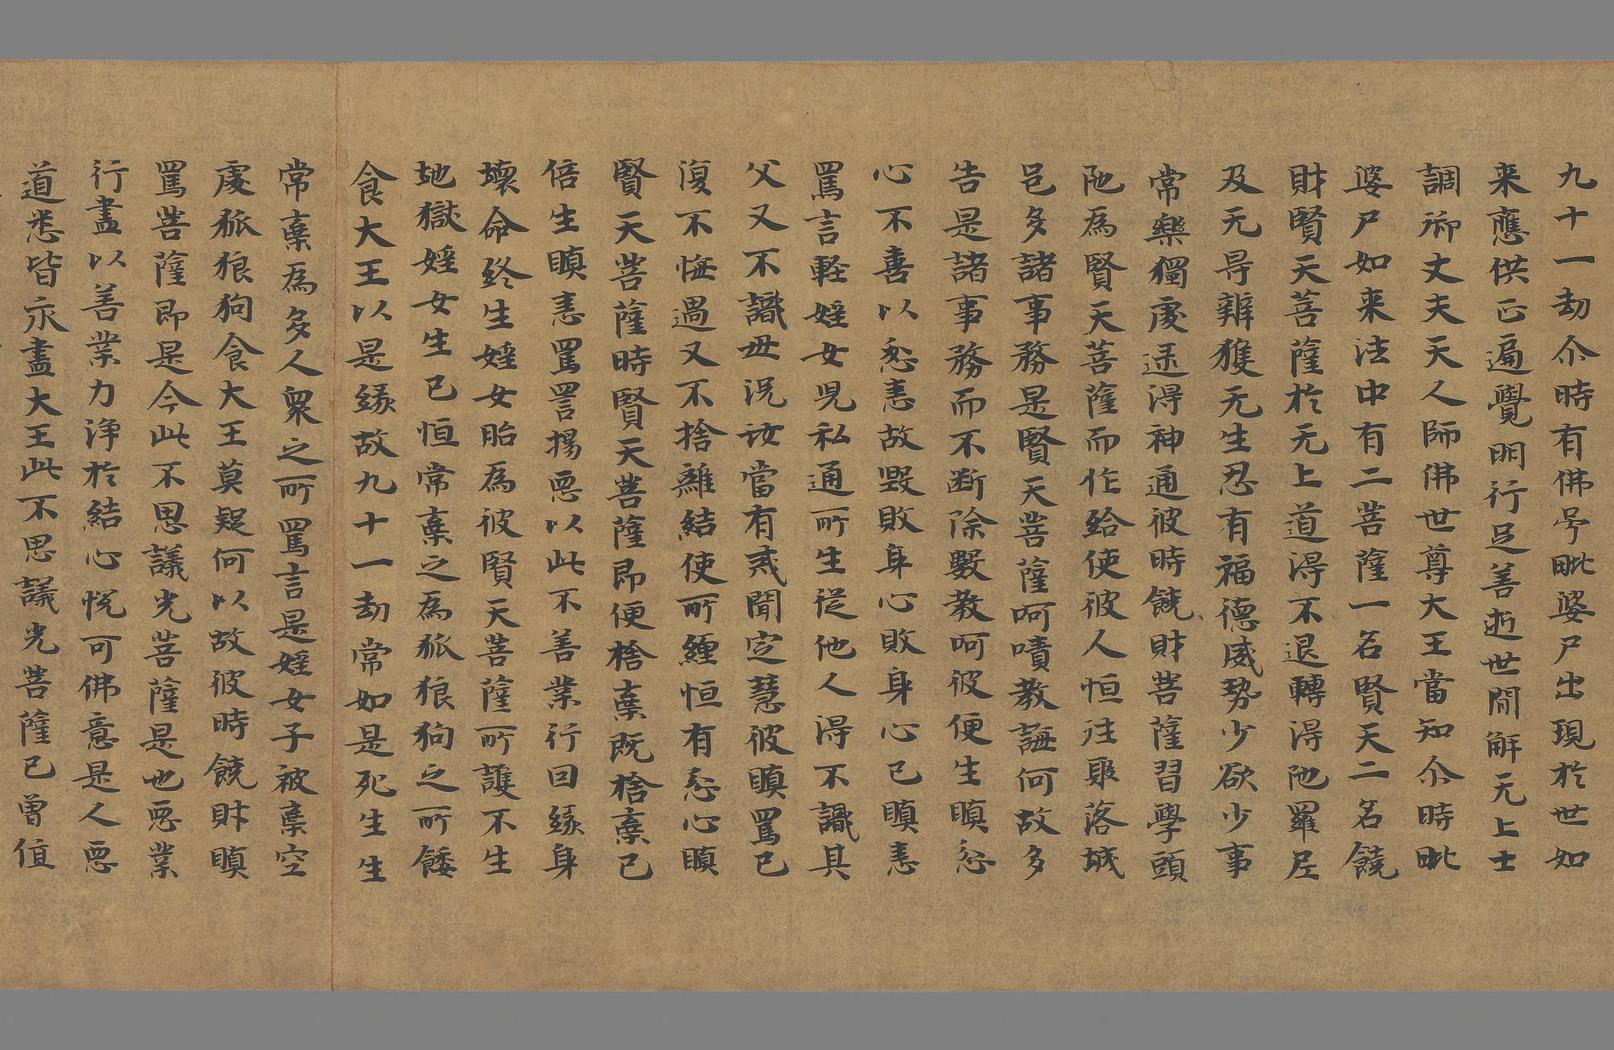 九十一劫尒時有佛号毗婆尸出現於世如
来應供正遍覺明行足善逝世間解无上士
調御丈夫天人師佛世尊大王當知尒時毗
婆尸如来法中有二菩薩一名賢天二名饒
財賢天菩薩於无上道得不退轉得陁羅尼
及无㝵辯獲无生忍有福德威勢少欲少事
常樂獨處逮得神通彼時饒財菩薩習學頭
陁為賢天菩薩而作給使彼人恒往聚落城
邑多諸事務是賢天菩薩呵嘖教誨何故多
告是諸事務而不断除數教呵彼便生瞋忿
心不善以忿恚故毀敗身心敗身心已瞋恚
罵言軽婬女児私通所生從他人得不識其
父又不識母况汝當有戒聞定慧彼瞋罵已
復不悔過又不捨離結使所纏恒有忿心瞋
賢天菩薩時賢天菩薩即便捨棄既捨棄已
倍生瞋恚罵詈揚惡以此不善業行因緣身
壞命終生婬女胎為彼賢天菩薩所護不生
地獄婬女生已恒常棄之為狐狼狗之所餧
食大王以是緣故九十一劫常如是死生生
常棄為多人衆之所罵言是婬女子被棄空
處狐狼狗食大王莫疑何以故彼時饒財瞋
罵菩薩即是今此不思議光菩薩是也惡業
行盡以善業力淨於結心悅可佛意是人惡
道悉皆永盡大王此不思議光菩薩已曾值